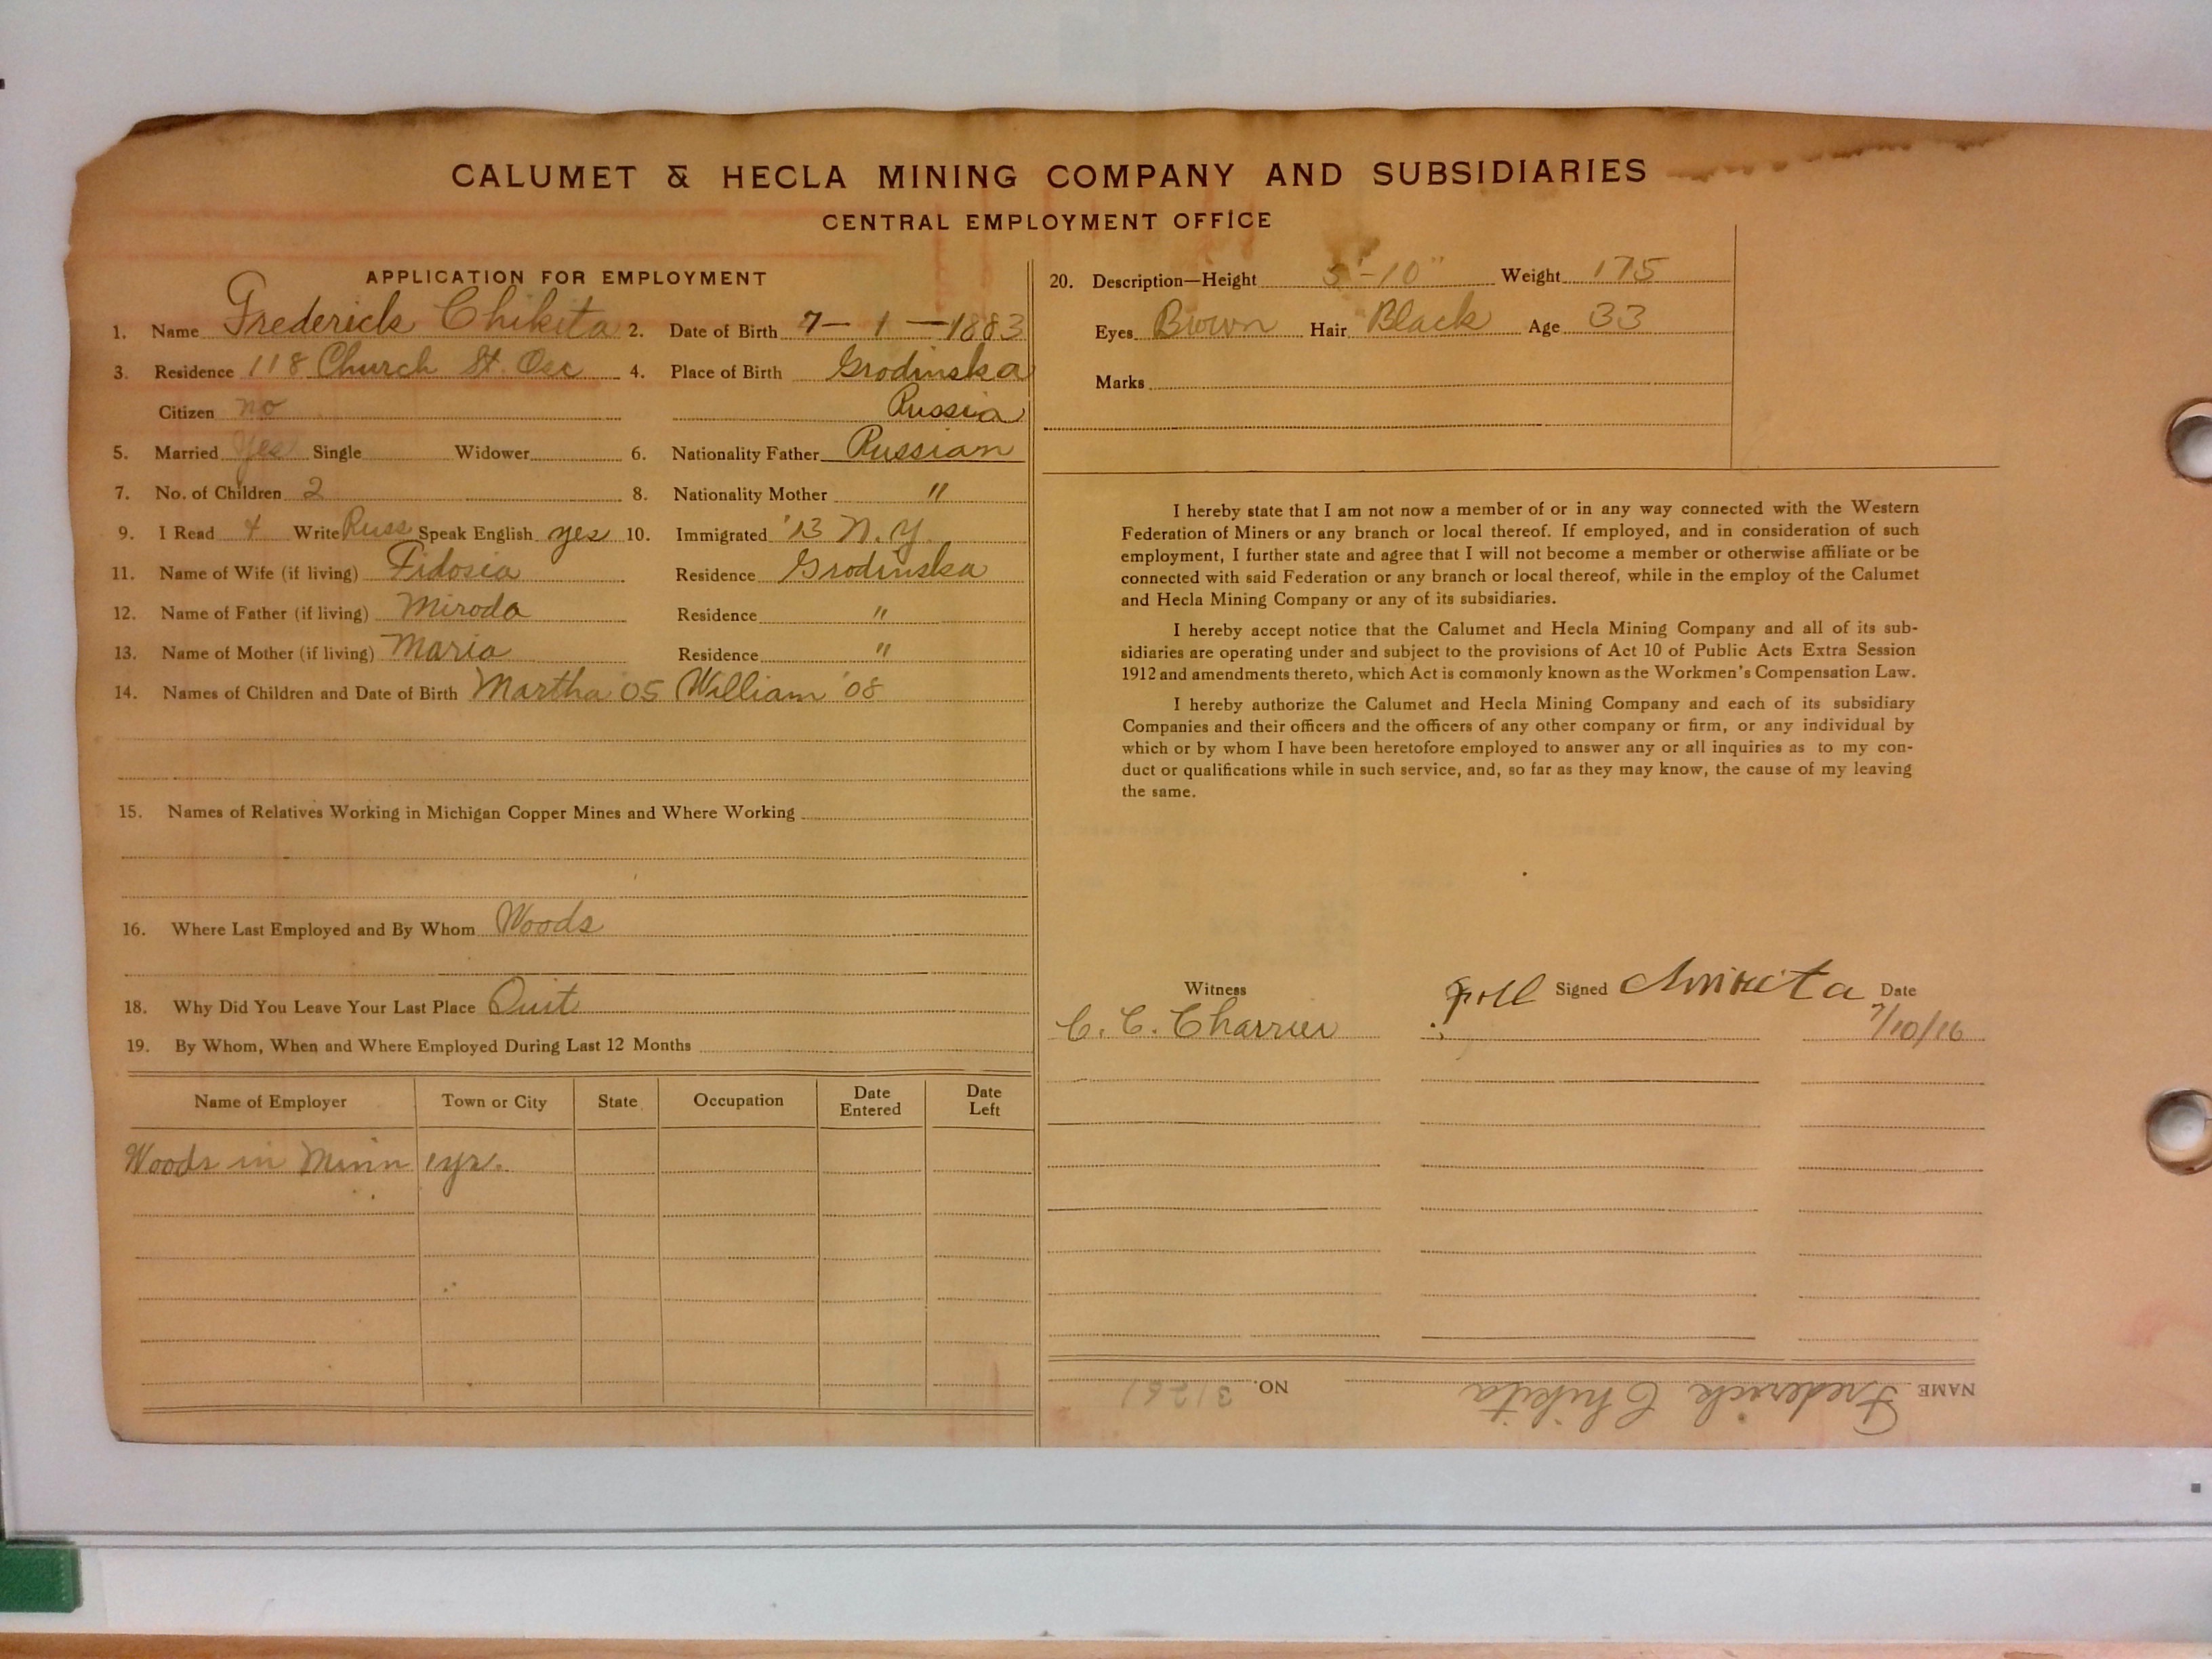 CALUMET & HECLA MINING COMPANY AND SUBSIDIARIES
CENTRAL EMPLOYMENT OFFICE
APPLICATION FOR EMPLOYMENT
1. Name Frederick Chikita 2. Date of Birth 7-1-1883
3. Residence 118 Church St. Osc 4. Place of Birth Grodinska
Citizen no Russia
5. Married Yes Single Widower 6. Nationality Father Russian
7. No. of Children 2 8. Nationality Mother "
9. I Read & Write Russ Speak English yes 10. Immigrated '13 N.Y.
11. Name of Wife (if living) Fidosia Residence Grodinska
12. Name of Father (if living) Miroda Residence "
13. Name of Mother (if living) Maria Residence "
14. Names of Children and Date of Birth Martha '05 William '08
15. Names of Relatives Working in Michigan Copper Mines and Where Working
16. Where Last Employed and By Whom Woods
18. Why Did You Leave Your Last Place Quit
19. By Whom, When and Where Employed During Last 12 Months
Name of Employer Town or City State Occupation Date Entered Date Left
Woods in Minn 1 yr.
20. Description—Height 5'-10" Weight 175
Eyes Brown Hair Black Age 33
Marks
I hereby state that I am not now a member of or in any way connected with the Western
Federation of Miners or any branch or local thereof. If employed, and in consideration of such
employment, I further state and agree that I will not become a member or otherwise affiliate or be
connected with said Federation or any branch or local thereof, while in the employ of the Calumet
and Hecla Mining Company or any of its subsidiaries.
I hereby accept notice that the Calumet and Hecla Mining Company and all of its sub-
sidiaries are operating under and subject to the provisions of Act 10 of Public Acts Extra Session
1912 and amendments thereto, which Act is commonly known as the Workmen's Compensation Law.
I hereby authorize the Calumet and Hecla Mining Company and each of its subsidiary
Companies and their officers and the officers of any other company or firm, or any individual by
which or by whom I have been heretofore employed to answer any or all inquiries as to my con-
duct or qualifications while in such service, and, so far as they may know, the cause of my leaving
the same.
Witness Signed Date
C. C. Charrier 7/10/16
NAME Frederick Chikita NO. 31261